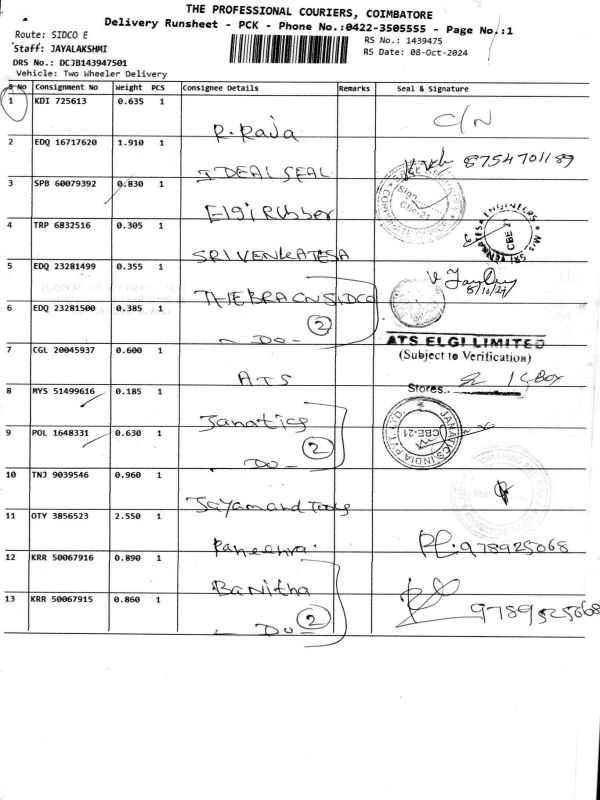 THE PROFESSIONAL COURIERS, COIMBATORE
Delivery Runsheet - PCK - Phone No.:0422-3505555 - Page No.:1
Route: SIDCO E
RS No.: 1439475
Staff: JAYALAKSHMI
RS Date: 08-Oct-2024
DRS No.: DCJB143947501
Vehicle: Two Wheeler Delivery
S No Consignment No Weight PCS Consignee Details Remarks Seal & Signature
1 KDI 725613 0.635 1 R.Raja C/N
2 EDQ 16717620 1.910 1 IDEAL SEAL 8754701189
3 SPB 60079392 0.830 1 Elgi Rubber
4 TRP 6832516 0.305 1 SRI VENKATESA
5 EDQ 23281499 0.355 1 THEBRACNSIDCO 8/10/24
6 EDQ 23281500 0.385 1 - Do - 2
ATS ELGI LIMITED
(Subject to Verification)
7 CGL 20045937 0.600 1 ATS
Stores..
8 MYS 51499616 0.185 1 Janatics
JANATICS INDIA PVT. LTD.
CBE-21
9 POL 1648331 0.630 1 - Do - 2
10 TNJ 9039546 0.960 1
11 OTY 3856523 2.550 1 978925068
12 KRR 50067916 0.890 1 Banitha
13 KRR 50067915 0.860 1 - Do - 2 9789525068